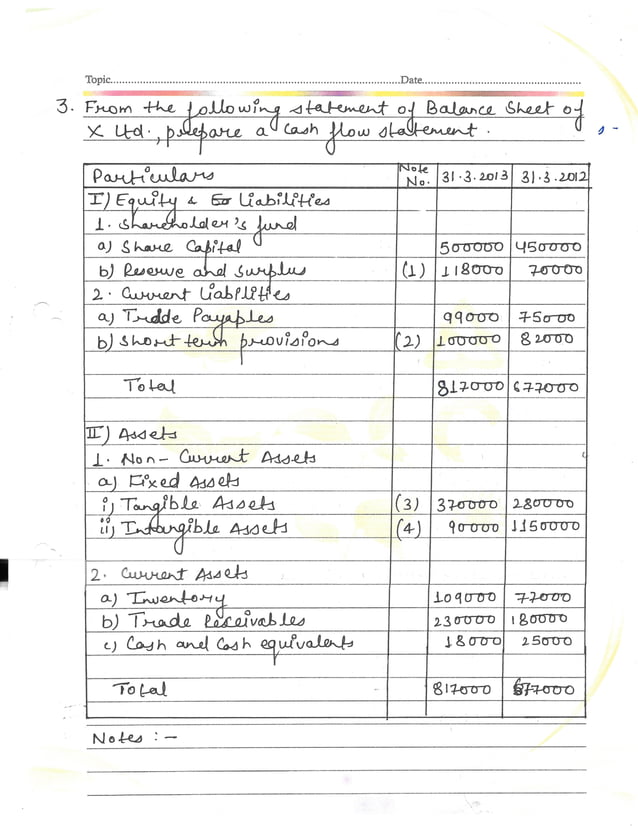 Topic..........Date..........
3. From the following statement of Balance Sheet of
X Ltd., prepare a cash flow statement.
Particulars Note No. 31.3.2013 31.3.2012
I) Equity & Liabilities
1. Shareholder's fund
a) Share Capital 500000 450000
b) Reserve and Surplus (1) 118000 70000
2. Current Liabilities
a) Trade Payables 99000 75000
b) Short term provisions (2) 100000 82000
Total 817000 677000
II) Assets
1. Non-Current Assets
a) Fixed Assets
i) Tangible Assets (3) 370000 280000
ii) Intangible Assets (4) 90000 1150000
2. Current Assets
a) Inventory 109000 77000
b) Trade Receivables 230000 180000
c) Cash and Cash equivalents 18000 25000
Total 817000 677000
Notes :-